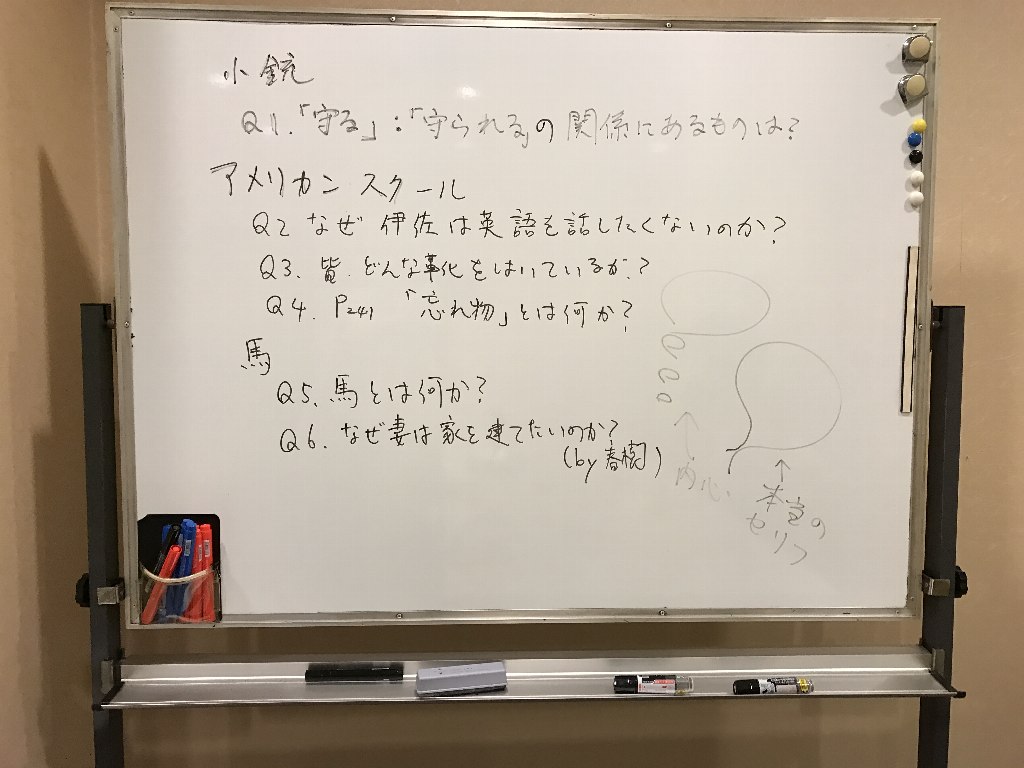 小銃
Q1.「守る」:「守られる」の関係にあるものは?
アメリカンスクール
Q2 なぜ伊佐は英語を話したくないのか?
Q3. 皆.どんな革化をはいているか.?
Q4. P241 「忘れ物」とは何か?
馬
Q5. 馬とは何か?
Q6. なぜ妻は家を建てたいのか?
(by 春樹)
↑
内心.
↑
本当の
セリフ